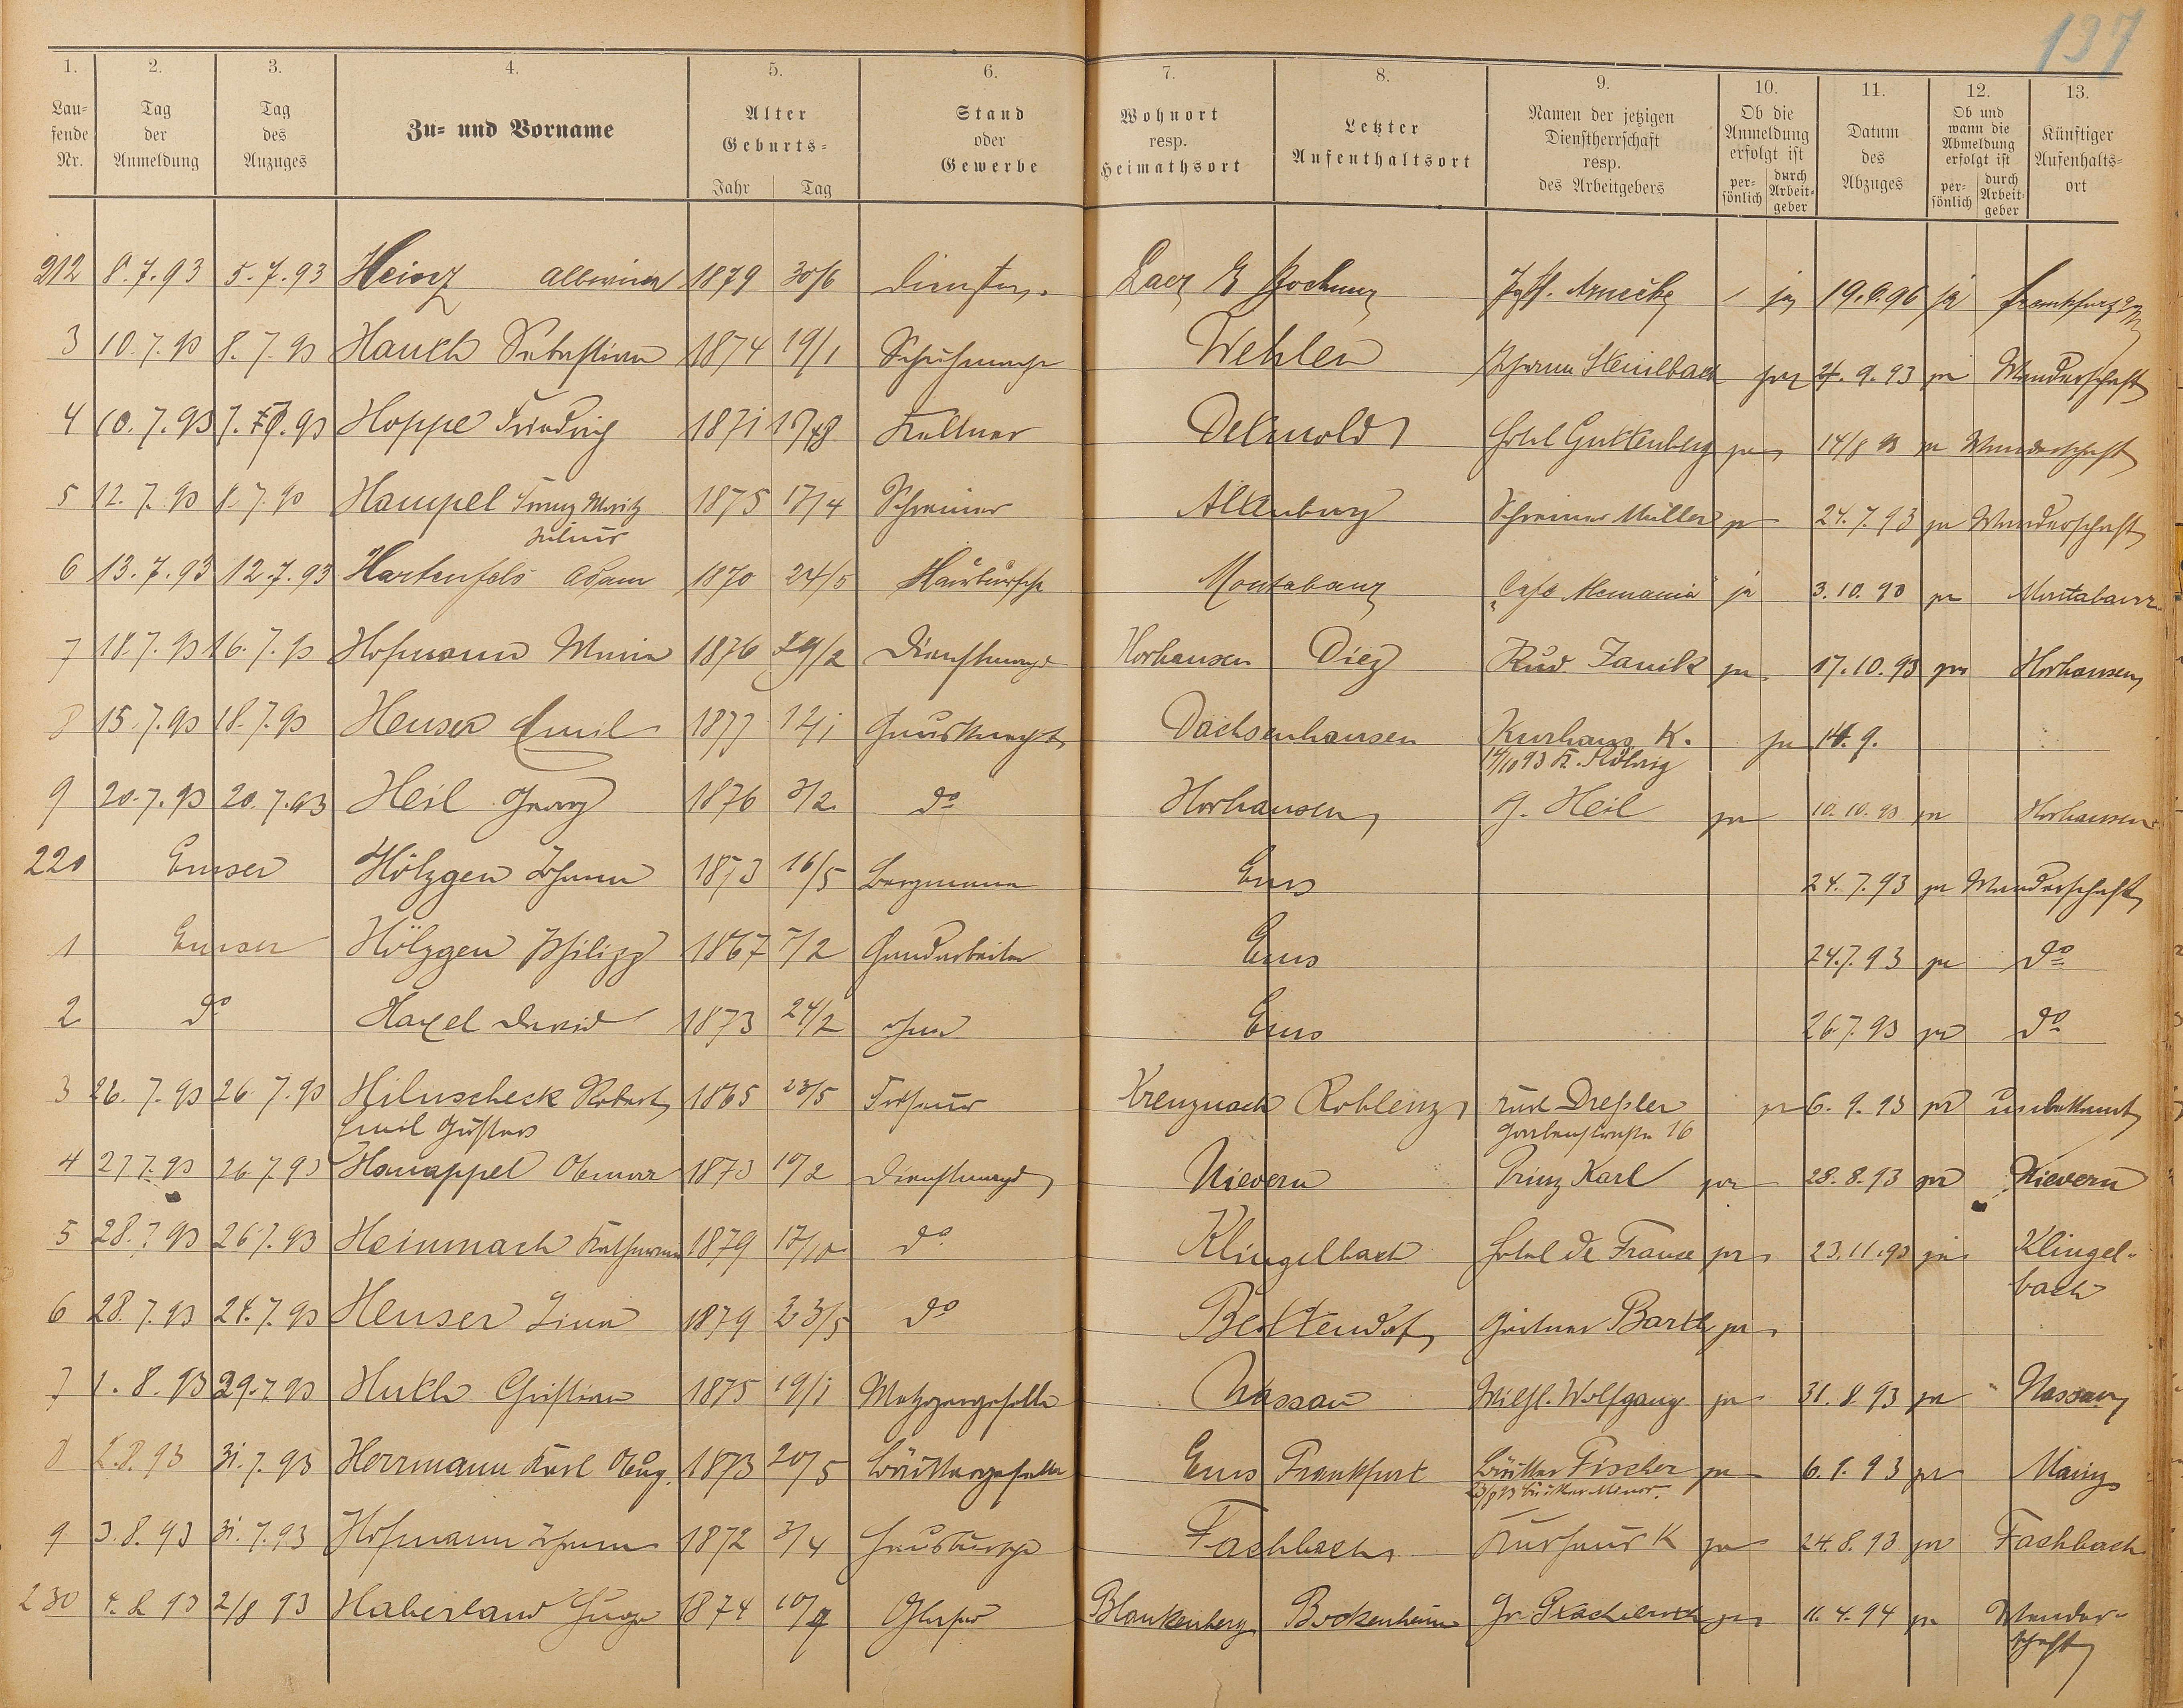 137
1. 2. 3. 4. 5. 6. 7. 8. 9. 10. 11. 12. 13.
Lau-
fende
Nr.
Tag
der
Anmeldung
Tag
des
Anzuges
Zu- und Vorname
Alter
Geburts-
Jahr Tag
Stand
oder
Gewerbe
Wohnort
resp.
Heimathsort
Letzter
Aufenthaltsort
Namen der jetzigen
Dienstherrschaft
resp.
des Arbeitgebers
Ob die
Anmeldung
erfolgt ist
per-
sönlich
durch
Arbeit-
geber
Datum
des
Abzuges
Ob und
wann die
Abmeldung
erfolgt ist
per-
sönlich
durch
Arbeit-
geber
Künftiger
Aufenhalts-
ort
212 8.7.93 5.7.93 1879 30/6 ja 19.6.96 ja
3 10.7.93 8.7.93 Hauth Sebastian 1874 19/1 Wehlen ja 24.9.93 ja Wanderschaft
4 10.7.93 Hoppe Friedrich 1871 Kellner Detmold Hotel Guttenberg ja 14/8 93 ja Wanderschaft
5 12.7.93 8.7.93 Hampel Franz Moritz 1875 17/4 Schreiner Altenburg Schreiner Müller ja 24.7.93 ja Wanderschaft
Julius
6 13.7.93 12.7.93 Hartenfels Adam 1870 24/5 Hausbursche Montabaur "Cafe Alemania" ja 3.10.93 ja Montabaur
7 18.7.93 16.7.93 Hofmann Maria 1876 29/2 Dienstmagd Horhausen Diez Rud. Janik ja 17.10.93 ja Horhausen
8 15.7.93 18.7.93 Heuser Emil 1877 12/1 Hausknecht Dachsenhausen Kurhaus K. ja 14.9.
9 20.7.93 20.7.93 Heil Georg 1876 3/2 do Horhausen G. Heil ja 10.10.93 ja Horhausen
220 Emser Hölzgen Johann 1873 16/5 Bergmann Ems 24.7.93 ja Wanderschaft
1 Emser Hölzgen Philipp 1867 7/2 Handarbeiter Ems 24.7.93 ja do
2 do Haxel David 1873 24/2 ohne Ems 26.7.93 ja do
3 26.7.93 26.7.93 Hiluscheck Robert 1865 23/5 Kreuznach Koblenz Drehsler ja 6.9.93 ja unbekannt
Emil Gustav Gartenstraße 16
4 27.7.93 26.7.93 Hanappel 1873 10/2 Dienstmagd Nievern Prinz Karl ja 28.8.93 ja Nievern
5 28.7.93 26.7.93 Heimach 1879 17/10 do Klingelbach Hotel de France ja 23.11.93 ja Klingel-
bach
6 28.7.93 24.7.93 Heuser Lina 1879 23/5 do Bettendorf Gärtner Barth ja
7 1.8.93 29.7.93 Huth Christian 1875 19/1 Metzgergeselle Nassau Wilh. Wolfgang ja 31.8.93 ja Nassau
8 2.8.93 31.7.93 Herrmann Karl Aug. 1873 20/5 Ems Frankfurt Fischer ja 6.9.93 ja Mainz
9 3.8.93 31.7.93 Hofmann Johann 1872 3/4 Hausbursche Fachbach Kurhaus K ja 24.8.93 ja Fachbach
230 4.8.93 2/8 93 Haberland Hugo 1874 Glaser Blankenberg Bockenheim ja 11.4.94 ja Wander-
schaft